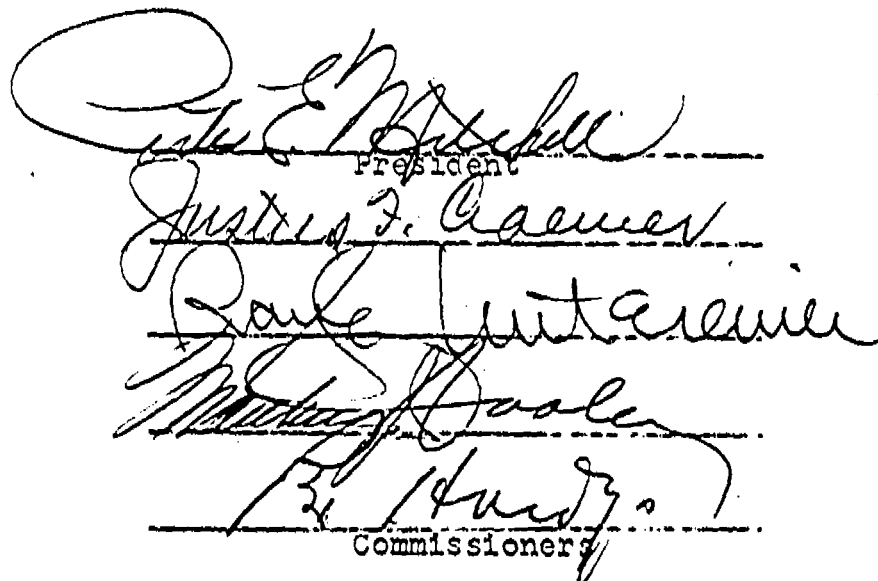 Peter E. Mitchell
President
Justus F. Craemer
Matthew J. Dooley
Hardy.
Commissioners